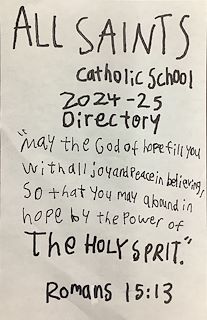 ALL SAINTS
Catholic School
2024-25
Directory
"May the God of hope fill you
with all joy and peace in believing,
so that you may abound in
hope by the power of
The HOLY SPRIT."
Romans 15:13